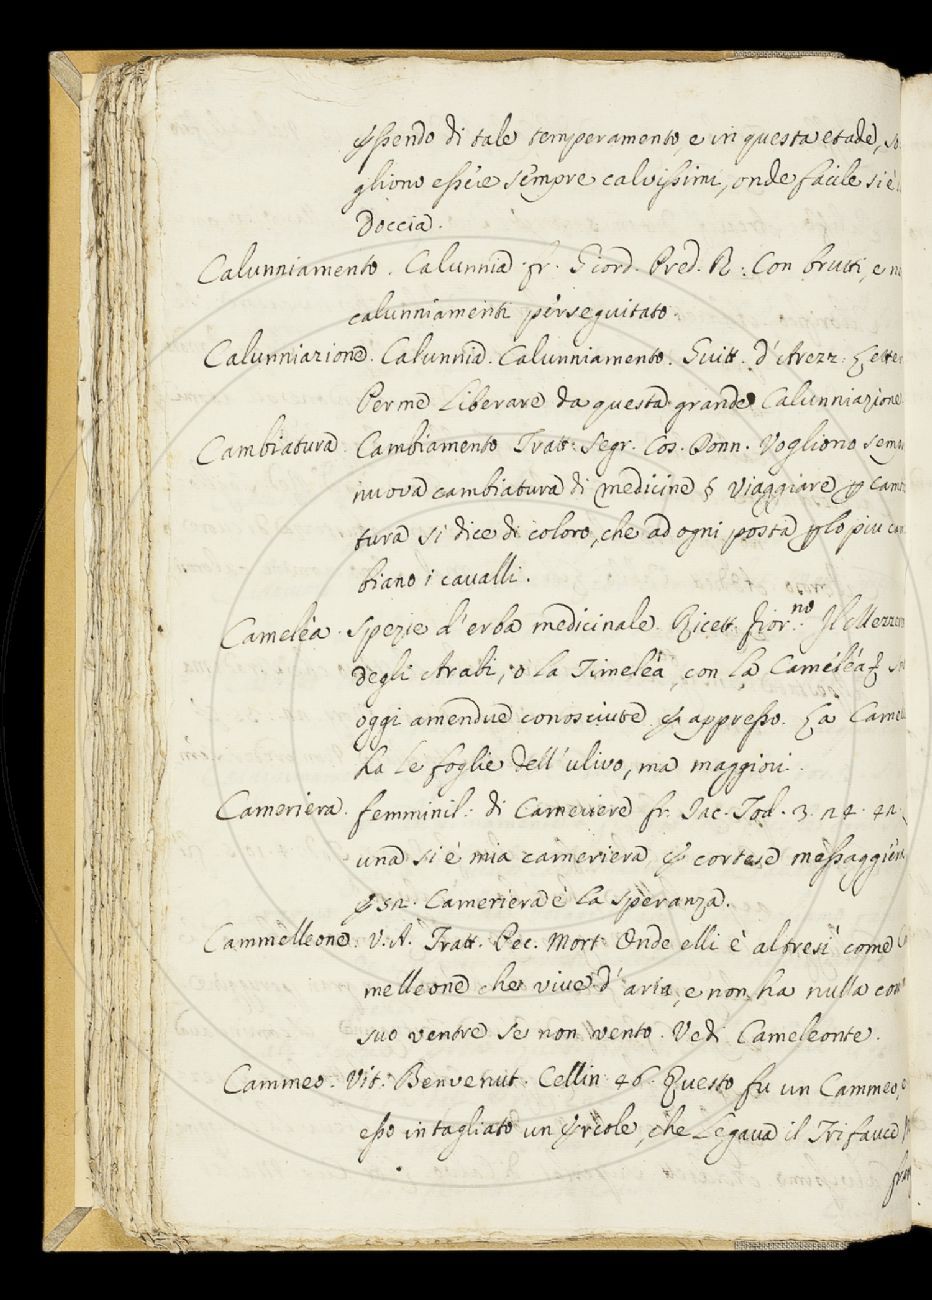 Essendo di tale temperamento, e in questa etade, so
gliono essere sempre calvissimi, onde facile si è
Doccia.
Calunniamento. Calunnia. fr. Giord. Pred. R.: Con brutti, e
calunniamenti perseguitato.
Calunniazione. Calunnia. Calunniamento. Guitt. d'Arezz. Lette
Per me liberare da questa grande Calunniazione
Cambiatura. Cambiamento Tratt. Segr. Cos. Donn. Vogliono sem
nuova cambiatura di medicine § Viaggiare p cam
tura si dice di coloro, che ad ogni posta plo piu
biano i cavalli.
Cameléa. Spezie d'erba medicinale. Ricett. fior.no Il Mezzer
degli Arabi, o la Timeléa, con la Cameléa
oggi amendue conosciute. E appresso. La Came
ha le foglie dell'ulivo, ma maggiori.
Cameriera. femminil. di Cameriere fr. Iac. Tod. 3. 24. 42.
una si è mia cameriera, E cortese messaggiera
E 52. Cameriera è la speranza.
Cammelleone. V. A. Tratt. Pec. Mort. Onde elli è altresi come
melleone che vive d'aria, e non ha nulla
suo ventre se non vento. Vedi Cameleonte.
Cammeo. Vit. Benvenut. Cellin. 46. Questo fu un Cammeo,
esso intagliato un Ercole, che legava il Trifauce